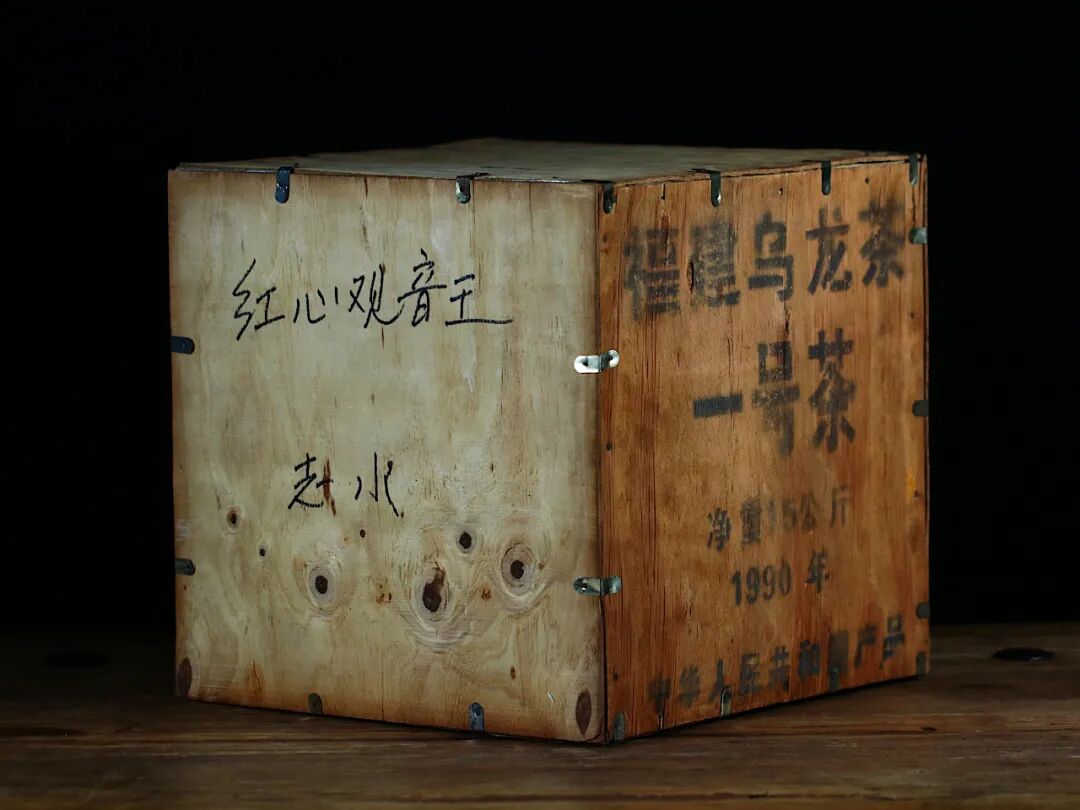 红心观音王
赵水
福建乌龙茶
一号茶
净重15公斤
1990年
中华人民共和国产品